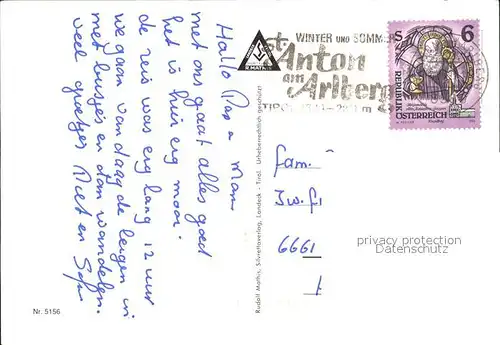 Hallo Pap en Mam.
met ons gaat alles goed
het is hier erg mooi.
de reis was erg lang 12 uur
we gaan vandaag de bergen in
met busjes en dan wandelen.
veel groetjes Riet en
WINTER UND SOMMER
St. Anton
am
Arlberg
TIROL
S 6
REPUBLIK
ÖSTERREICH
Rudolf Mathis, Silvrettaverlag, Landeck - Tirol. Urheberrechtlich geschützt
fam.
6661
privacy protection
Datenschutz
Nr. 5156